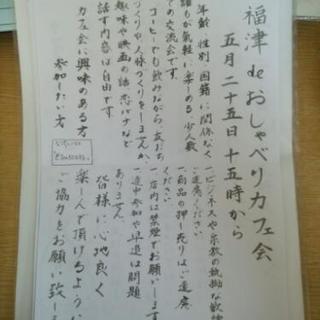 福津deおしゃべりカフェ会
五月二十五日十五時から
年齢、性別、国籍に関係なく
誰もが気軽に楽しめる、少人数
での交流会です。
コーヒーでも飲みながら、友だち
づくりや人脈づくりをしませんか、
趣味や映画の話、恋バナなど
話す内容は自由です。
カフェ会に興味のある方
参加したい方
一、ビジネスや宗教の執拗な勧誘
ご遠慮ください
一、商品の押し売りはご遠慮
ください
一、店内は禁煙でお願いします
一、途中参加や早退は問題
ありません。
皆様に心地良く
楽しんで頂けるように
ご協力をお願い致し